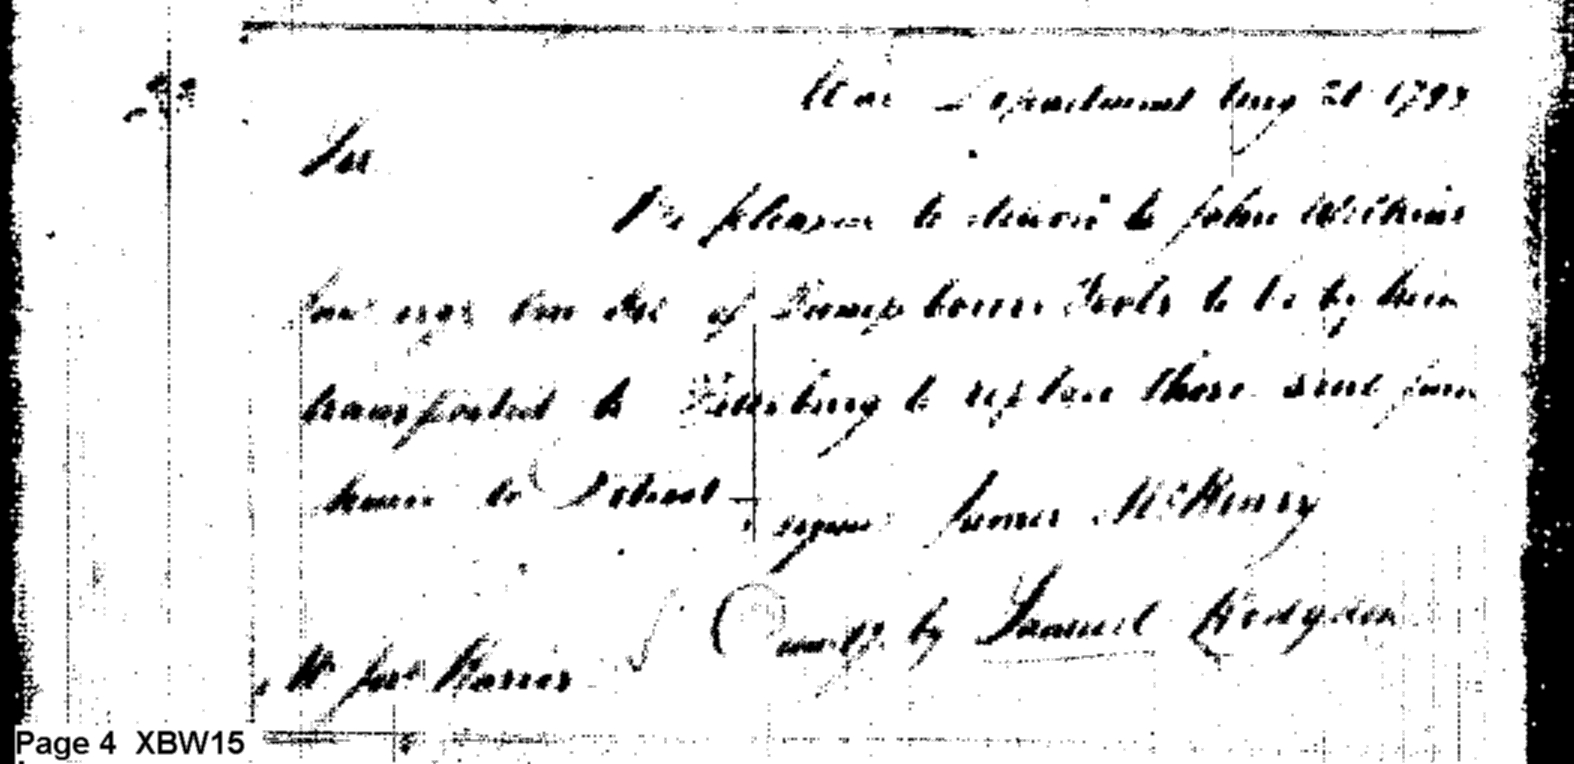 War Department Aug 21 1798
Sir
Be pleased to deliver to John Wilkins
Junr esqr one Set of Pump borers Tools to be by him
transported to Pittsburg to replace those sent from
hence to Detroit
signed James McHenry
by Samuel Hodgdon
Mr Jos Harris
Page 4 XBW15